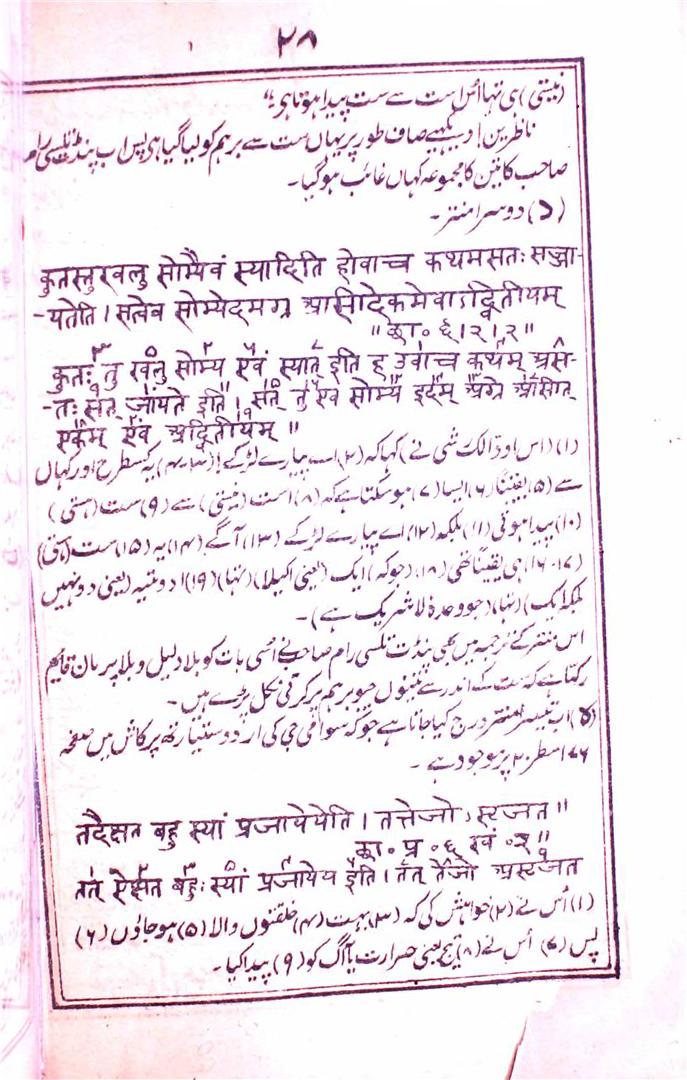 ۲۸
(نیستی) ہی تہا اُس است سے ست پیدا ہوتا ہی"
ناظرین! دیکہیے صاف طور پر یہاں ست سے برہم کو لیا گیا ہی پس اب پنڈت تلسی رام
صاحب کا تین کا مجموعہ کہاں غائب ہو گیا۔
(۷) دوسرا منتر۔
कुतस्तु खलु सोम्यैवं स्यादिति होवाच कथमसतः सज्जा-
-यतेति । सत्वेव सोम्येदमग्र आसीदेकमेवाऽद्वितीयम्
॥ छा॰ ६।२।२॥
कुतः तु खलु सोम्य एवं स्यात् इति ह उवाच कथम् अस-
-तः सत् जायते इति। सत् तु एव सोम्य इदम् अग्रे आसीत्
एकम् एव अद्वितीयम् ॥
(۱) (اس اودّالک رشی نے) کہا کہ (۲) اے پیارے لڑکے! (۳-۴) یہ کسطرح اور کہاں
سے (۵) یقینًا (۶) ایسا (۷) ہو سکتا ہے کہ (۸) است (نیستی) سے (۹) ست (ہستی)
(۱۰) پیدا ہوئی (۱۱) بلکہ (۱۲) اے پیارے لڑکے (۱۳) آگے (۱۴) یہ (۱۵) ست (ہستی)
(۱۶-۱۷) ہی یقینًا تھی (۱۸) (جو کہ) ایک (یعنی اکیلا) (تنہا) (۱۹) ادوتیہ (یعنی دو نہیں
بلکہ ایک) (تنہا) (جو وحدہٗ لا شریک ہے)۔
اس منتر کے ترجمہ میں بھی پنڈت تلسی رام صاحب نے اُسی بات کو بلا دلیل و بلا پرمان قایم
رکتا ہے کہ ست کے اندر سے تینوں جیو برہم پرکرتی نکل پڑے ہیں۔
(۸) اب تیسرا منتر درج کیا جاتا ہے جو کہ سوامی جی کی اردو ستیارتھ پرکاش میں صفحہ
۱۷۶ سطر ۲۰ پر موجود ہے۔
तदैक्षत बहु स्यां प्रजायेयेति । तत्तेजोऽसृजत ॥
छा॰ प्र॰ ६ खं॰ २॥
तत् ऐक्षत बहुः स्यां प्रजायेय इति । तत् तेजो असृजत
(۱) اُس نے (۲) خواہش کی کہ (۳) بہت (۴) خلقتوں والا (۵) ہو جاؤں (۶)
پس (۷) اُس نے (۸) تیج یعنی حرارت یا آگ کو (۹) پیدا کیا۔